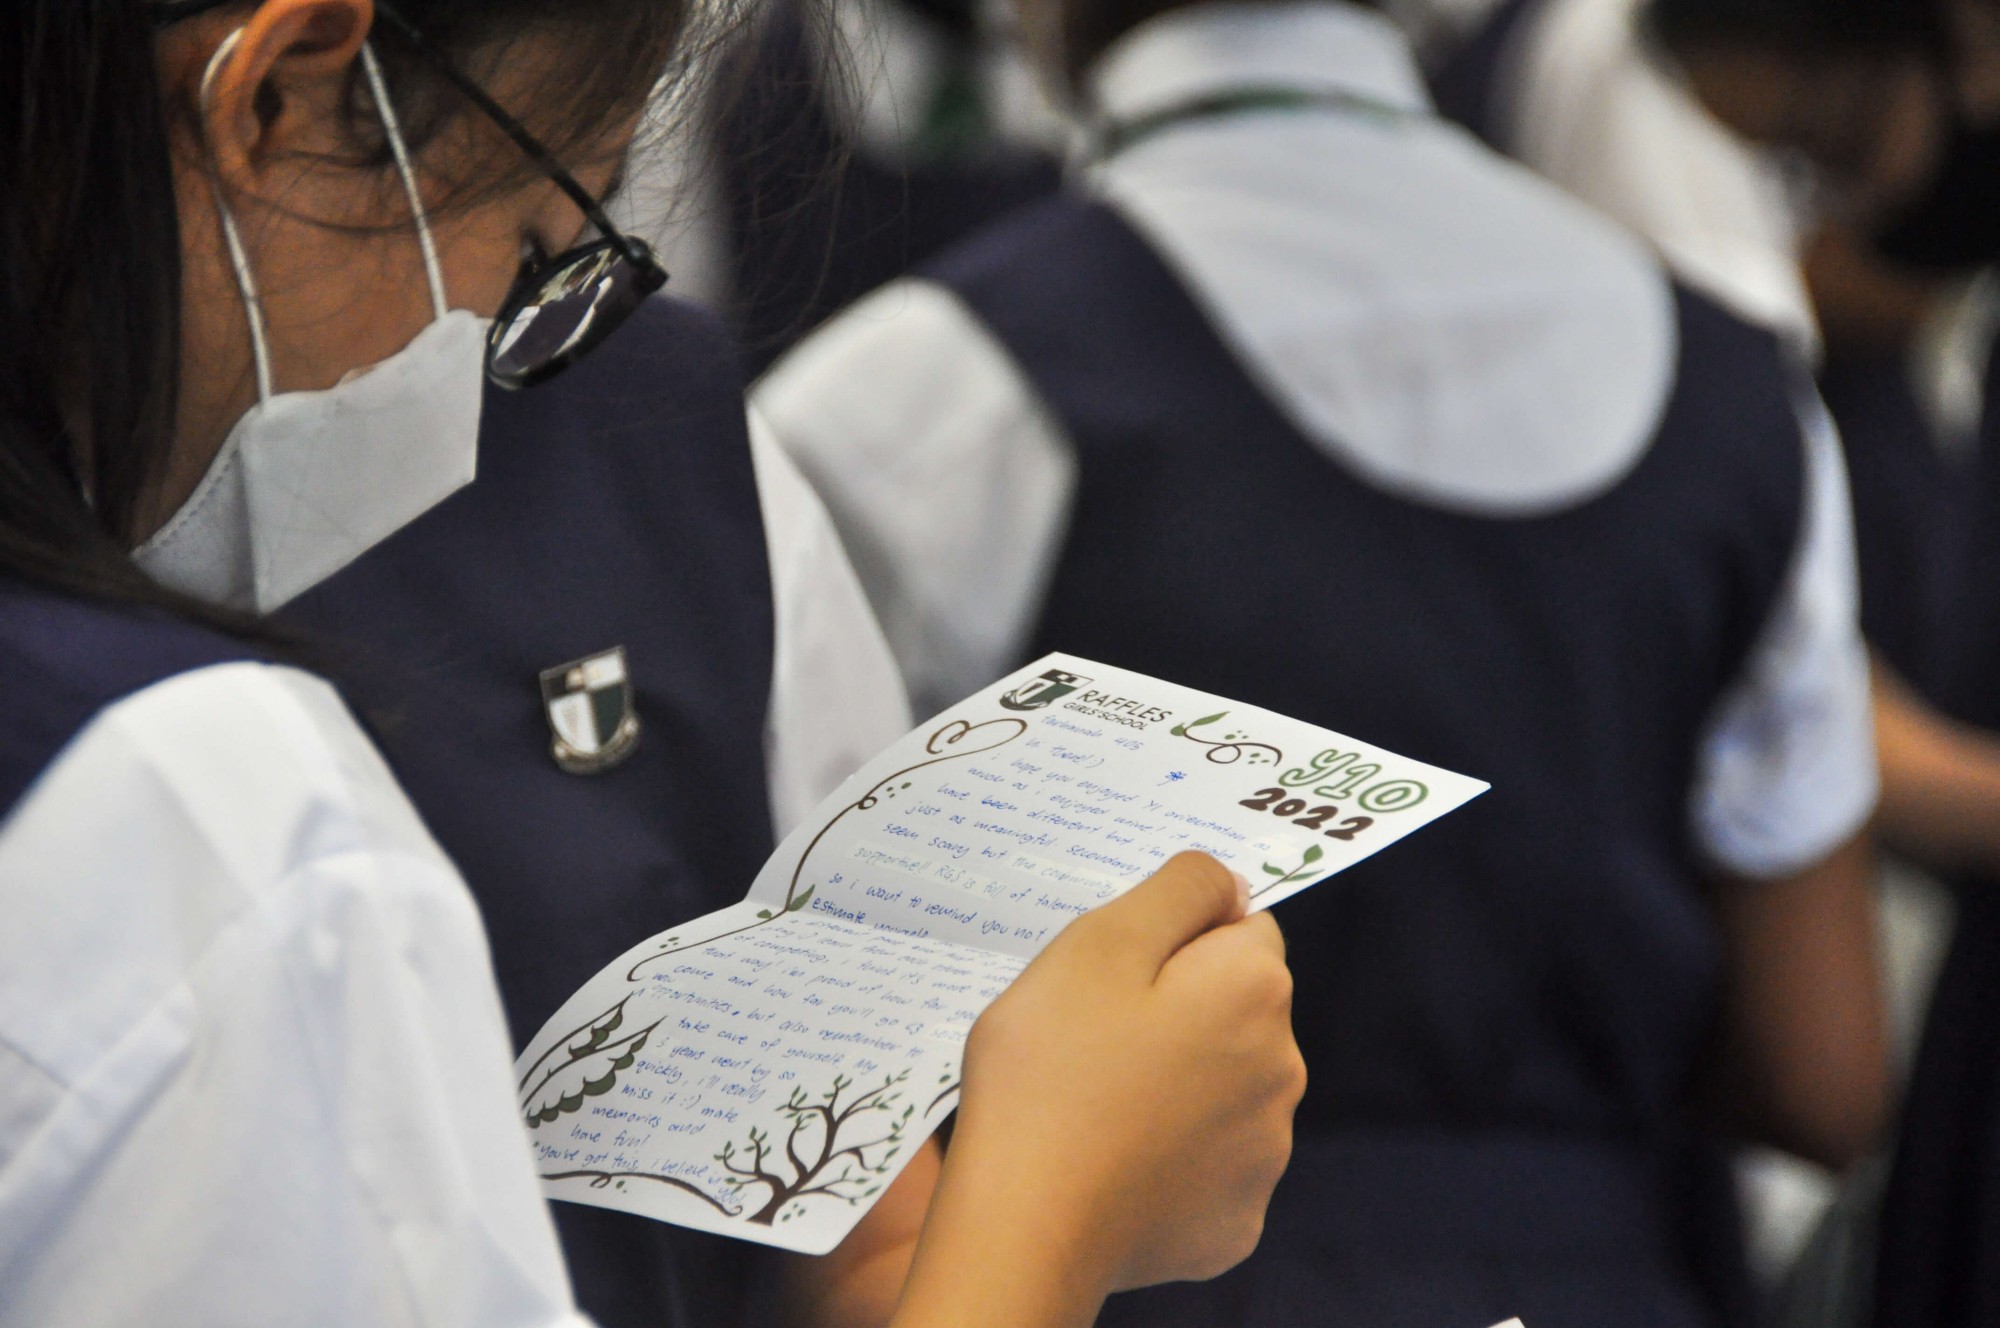 RAFFLES
GIRLS' SCHOOL
Y10
2022
405
hi there! :)
i hope you enjoyed Y1 orientation as
much as i enjoyed mine! it might
have been different but i'm
just as meaningful. secondary
seem scary but the community
supportive!! RGS is full of talente
so i want to remind you not
estimate yourself.
of competing, i think it's more
that way! i'm proud of how far you
come and how far you'll go as seize
opportunities, but also remember to
take care of yourself. My
3 years went by so
quickly, i'll really
miss it :') make
memories and
have fun!
you've got this, i believe in
you!